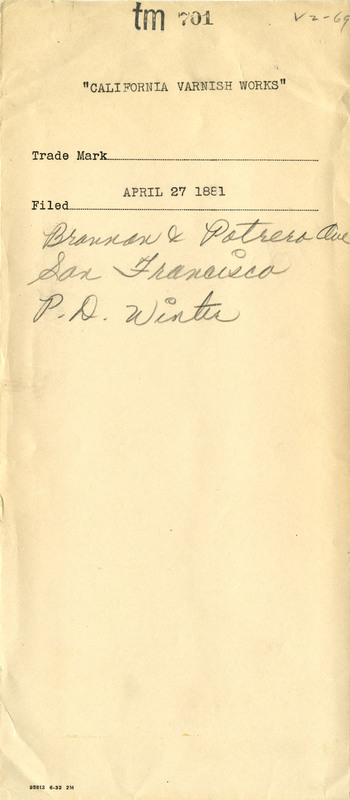 tm 701
V2-69
"CALIFORNIA VARNISH WORKS"
Trade Mark
APRIL 27 1881
Filed
Brannan & Potrero Ave
San Francisco
P. D. Winter
95813 6-32 2M